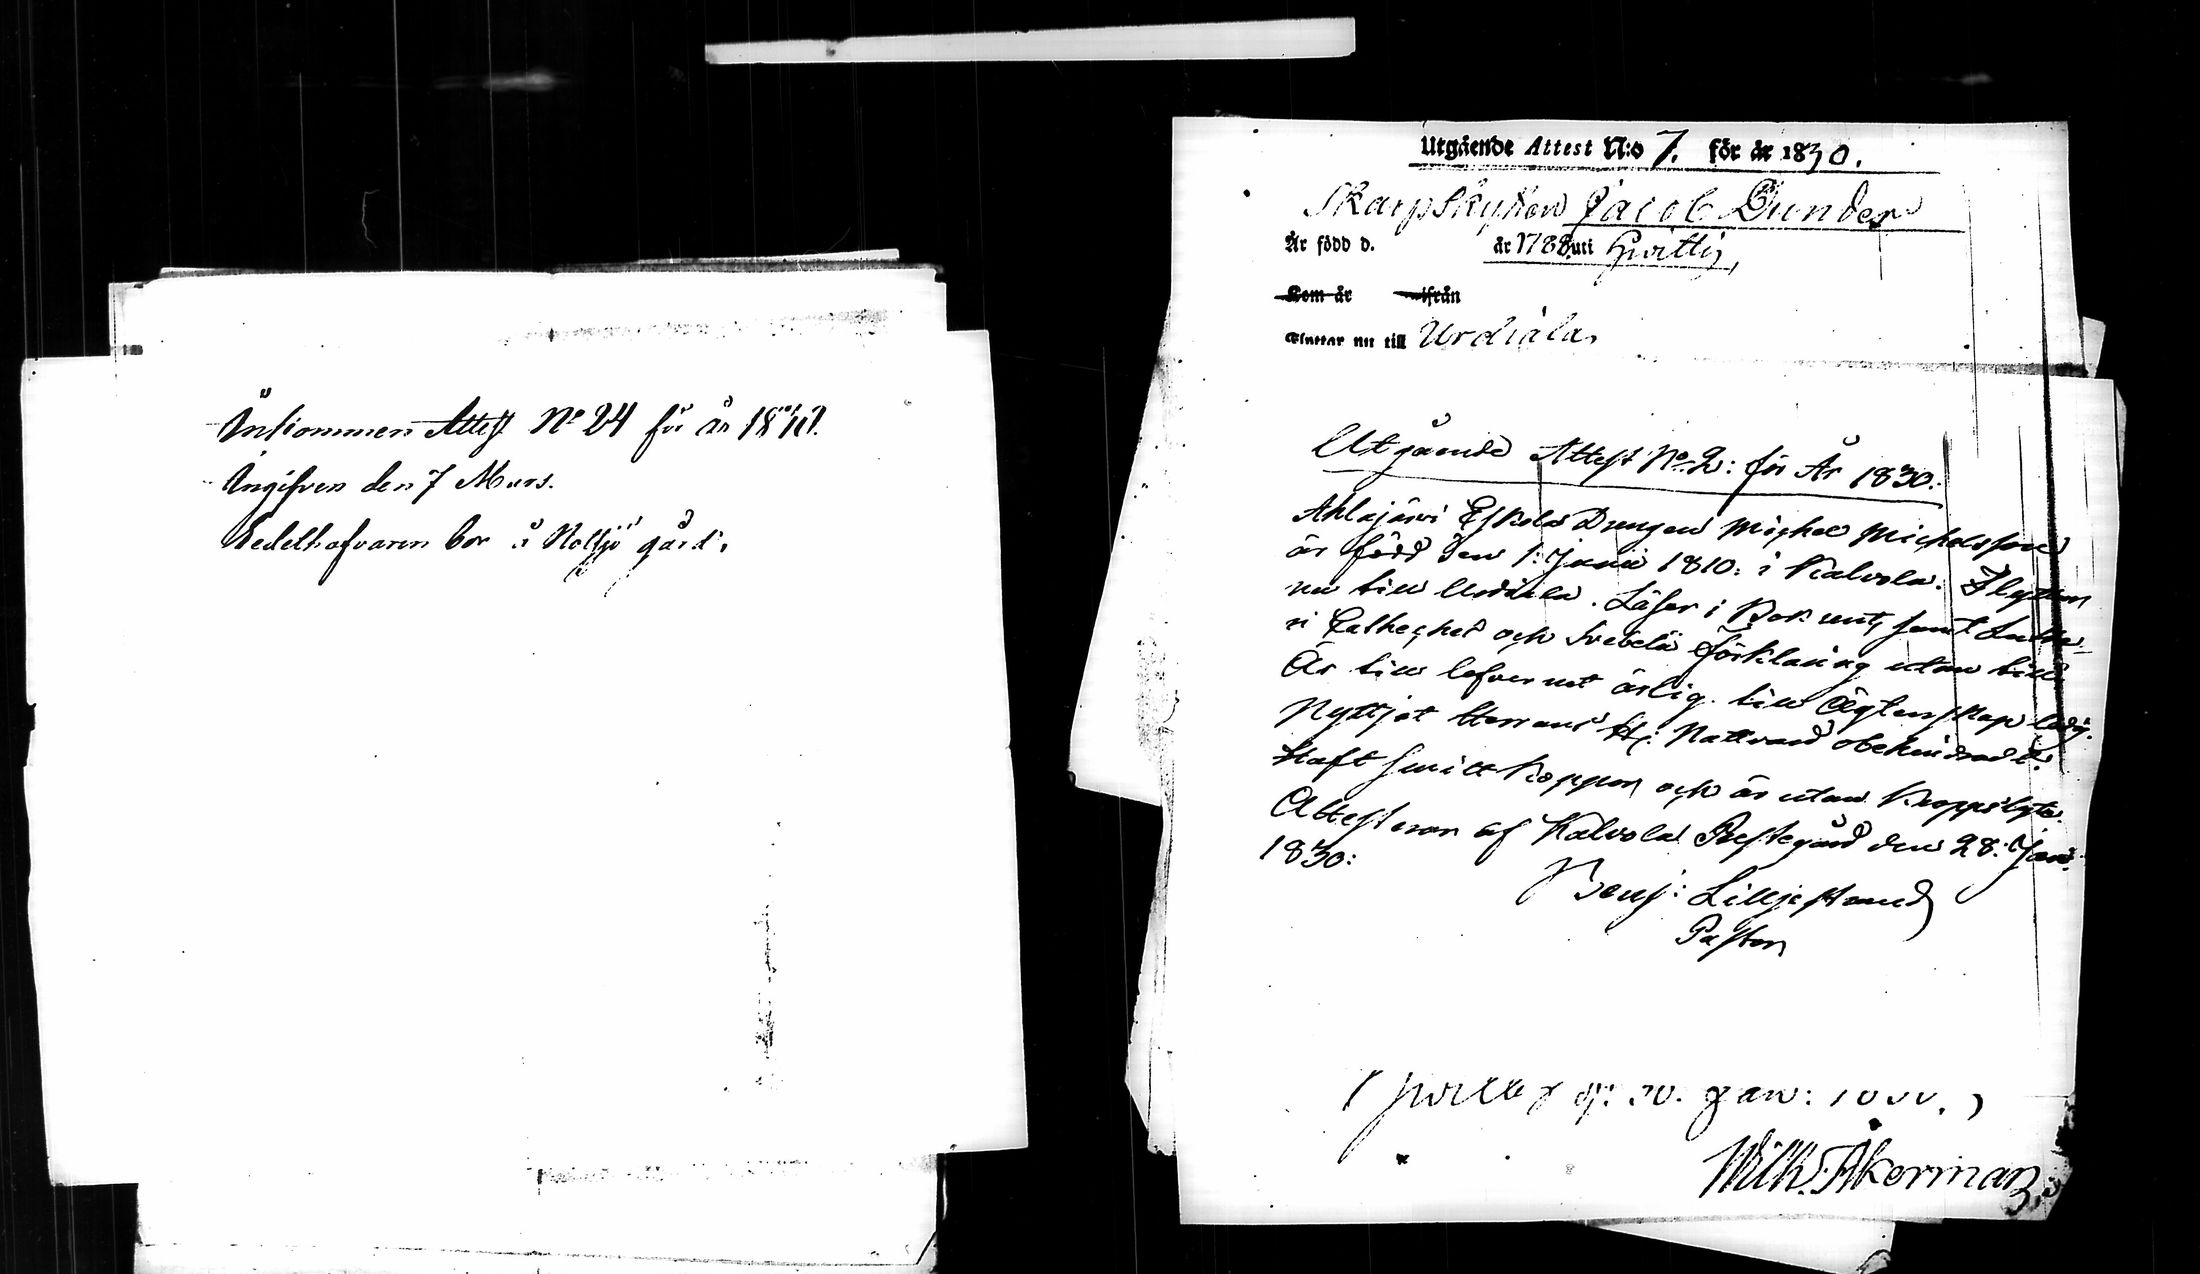 Inkommen Attest No 24 för år
Ingifven den 7 Mars.
Sedelhafvaren bor å Nottjö gård.
Utgående Attest N:o 7. för år 1830.
Skarpskytten Jacob Dunder
År född d. år 1788 uti Hvittis,
Kom år ifrån
Flyttar nu till Urdiala.
Utgående Attest No 2: för År 1830.
Ahlajärvi Eskola Drengen Michel Michelsson
är född den 1: Junii 1810: i Kalvola. Flyttar
nu till Urdiala. Läser i Bok samt
i Catheches och Svebelii Förklaring utan till
Är till lefvernet ärlig. till Ägtenskap ledig.
Nyttjat Herrans H: Nattvard obehindradt.
Haft Koppor och är utan kroppslyte.
Attesteras af Kalvola Prestegård den 28: Jan:
1830:
Benj: Lilljestrand
Pastor
Jan:
Wilh. Åkerman